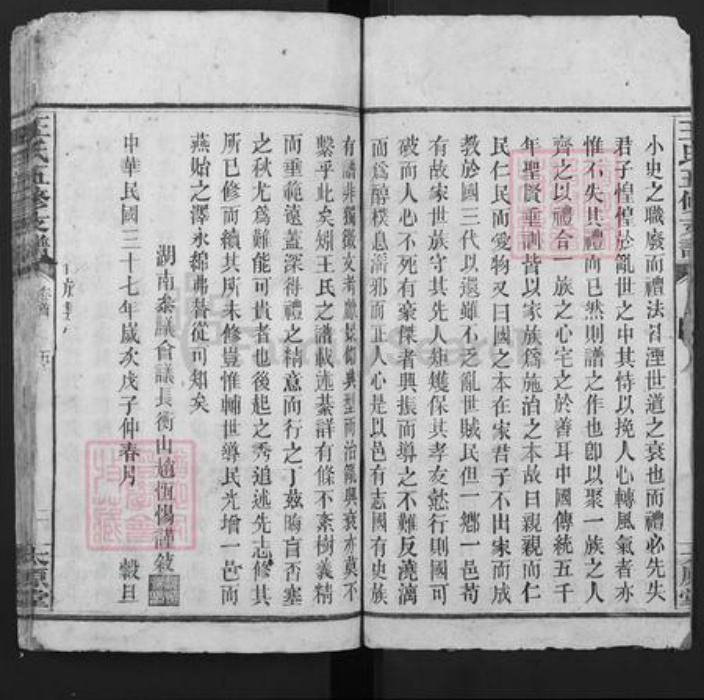 小史之職廢而禮法百湮世道之衰也而禮必先失
君子惶惶於亂世之中其恃以挽人心轉風氣者亦
惟不失其禮而已然則譜之作也卽以聚一族之人
齊之以禮合一族之心宅之於善耳中國傳統五千
年聖賢垂訓皆以家族爲施治之本故曰親親而仁
民仁民而愛物又曰國之本在家君子不出家而成
教於國三代以還雖不乏亂世賊民但一鄉一邑苟
有故家世族守其先人矩矱保其孝友懿行則國可
破而人心不死有豪傑者興振而導之不難反澆漓
而爲醇樸息淫邪而正人心是以邑有志國有史族
有譜非獨徵文考獻景仰典型而治亂興衰亦莫不
繫乎此矣矧王氏之譜載述綦詳有條不紊樹義精
而垂範遠蓋深得禮之精意而行之丁茲晦盲否塞
之秋尤爲難能可貴者也後起之秀追述先志修其
所已修而續其所未修豈惟輔世導民光增一邑而
燕始之澤永綿弗替從可知矣
湖南參議會議長衡山趙恆惕謹敘
中華民國三十七年歲次戊子仲春月 穀旦
王氏五修支譜 卷首 五
太原堂